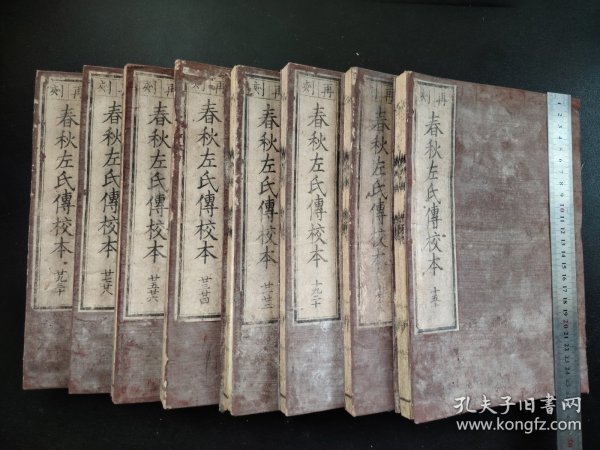 再刻
春秋左氏傳校本
再刻
春秋左氏傳校本
再刻
春秋左氏傳校本 十九二十
再刻
春秋左氏傳校本
再刻
春秋左氏傳校本 廿三四
再刻
春秋左氏傳校本 廿五六
再刻
春秋左氏傳校本 廿七八
再刻
春秋左氏傳校本 廿九三十
孔夫子旧书网
www.kongfz.com